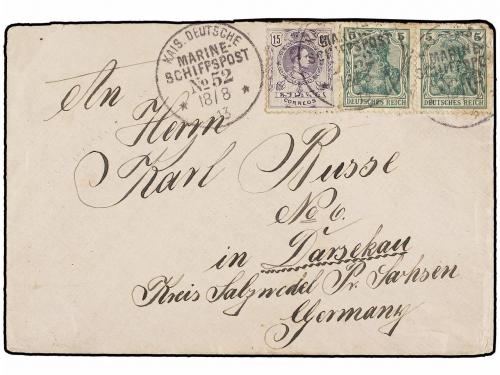 KAIS. DEUTSCHE
MARINE-
SCHIFFSPOST
No 52
18/8
13
15
CORREOS
5
DEUTSCHES REICH
5 5
DEUTSCHES REICH
MARINE-
An
Herrn
Karl Busse
No 6.
in Darsekau
Kreis Salzwedel Pr. Sachsen
Germany